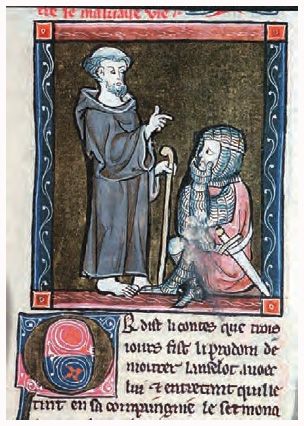 de se mauuaise vie
Or dist li contes que trois
iours fist li prodom de
mourer lanselot auoec
lui & entretant quil le
tint en sa compaingnie le sermona